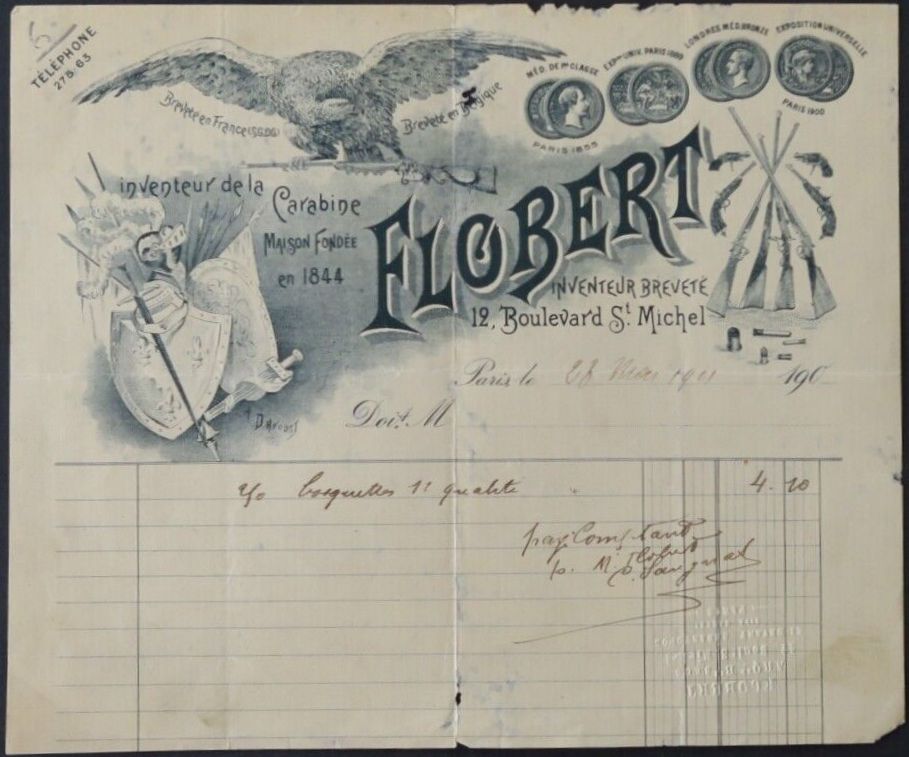 TÉLÉPHONE
278.63
Breveté en France (S.G.D.G)
Breveté en Belgique
MÉD. DE 1re CLASSE
PARIS 1855
EXPon UNIV. PARIS 1889
LONDRES MÉD. BRONZE
EXPOSITION UNIVERSELLE
PARIS 1900
inventeur de la
Carabine
MAISON FONDÉE
en 1844
FLOBERT
INVENTEUR BREVETÉ
12, Boulevard St Michel
Paris le 28 190
Doit M
casquettes 1e qualité 4.10
pay Comptant